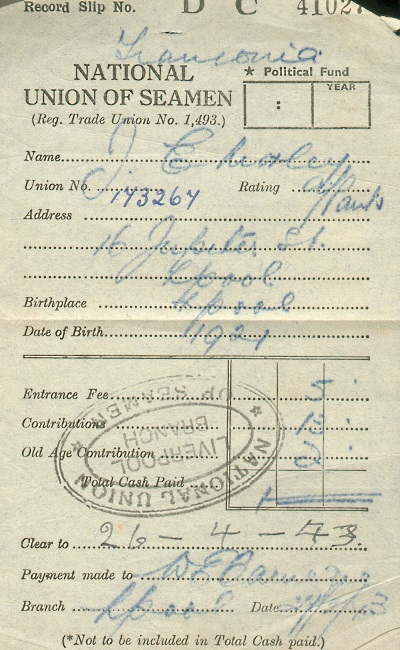 Record Slip No. D C 41027
Franconia
NATIONAL
UNION OF SEAMEN
(Reg. Trade Union No. 1,493.)
★ Political Fund
YEAR
:
Name J
Union No. 173267 Rating
Address
16 Jupiter St.
Lpool
Birthplace Lpool
Date of Birth 1921
Entrance Fee
Contributions
Old Age Contribution
Total Cash Paid
NATIONAL UNION OF SEAMEN
LIVERPOOL
BRANCH
Clear to 26-4-43
Payment made to
Branch Lpool Date
(*Not to be included in Total Cash paid.)